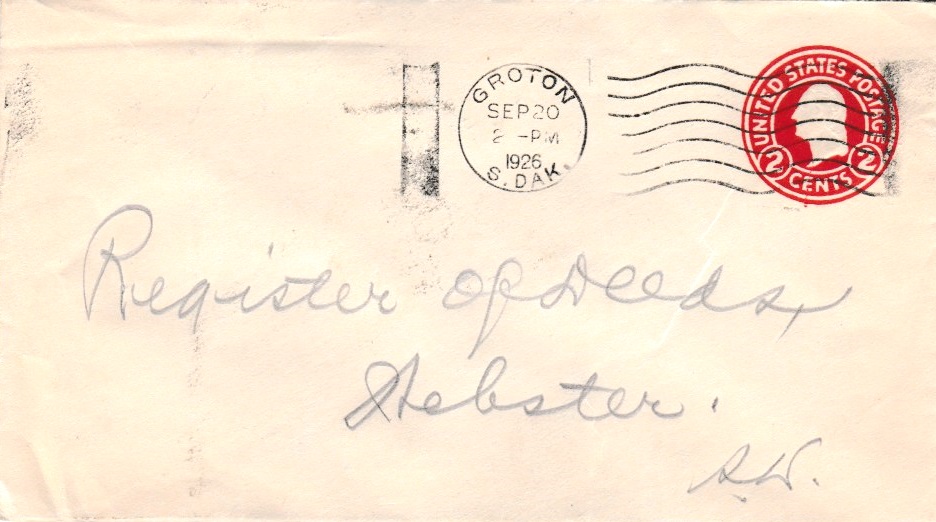 GROTON
SEP 20
2 -PM
1926
S. DAK.
UNITED STATES POSTAGE
2 CENTS 2
Register of Deeds,
Webster.
S.D.